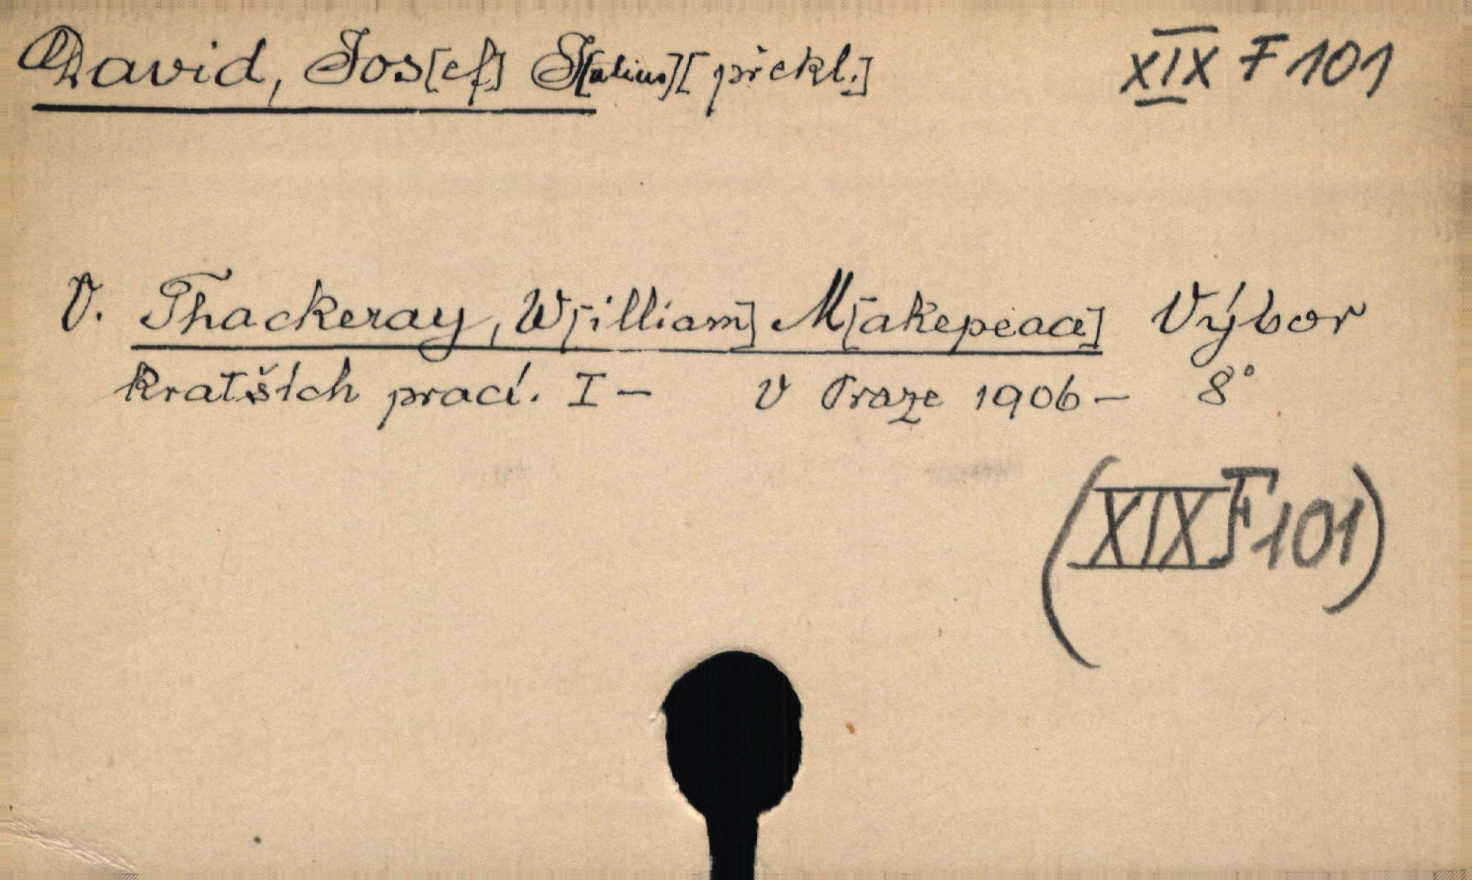 David, Jos[ef] J[ulius] [překl.] XIX F 101
V. Thackeray, W[illiam] M[akepeace] Výbor
kratších prací. I— V Praze 1906— 8°
(XIX F 101)